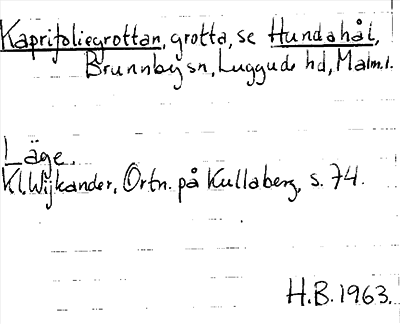 Kaprifoliegrottan, grotta, se Hundahål,
Brunnby sn, Luggude hd, Malm.l.
Läge.
Kl. Wijkander, Ortn. på Kullaberg, s. 74.
H.B. 1963.